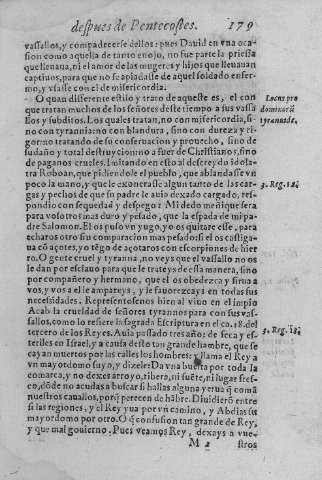 despues de Pentecostes. 179
vassallos, y compadecerse dellos: pues David en vna oca
sion como aquella de tanto enojo, no fue parte la priessa
que lleuaua, ni el amor de las mugeres y hijos que lleuauan
captiuos, para que no se apiadasse de aquel soldado enfer-
mo, y vsasse con el de misericordia.
O quan differente estilo y trato de aqueste es, el con
que tratan muchos de los señores deste tiempo a sus vassa
llos y subditos. Los quales tratan, no con misericordia, si
no con tyrannia: no con blandura, sino con dureza y ri-
gor: no tratando de su conseruacion y prouecho, sino de
su daño y total destruycion: no a fuer de Christianos, sino
de paganos crueles. Imitando en esto al deserey do idola-
tra Roboan, que pidiendole el pueblo, que ablandasse vn
poco la mano, y que le exonerasse algun tanto de las car-
gas y pechos de que su padre le auia dexado cargado, res-
pondio con sequedad y despego: Mi dedo menique sera
para vosotros mas duro y pesado, que la espada de mi pa-
dre Salomon. El os puso vn yugo, yo os quitare esse, para
echaros otro sin comparacion mas pesado: si el os castiga-
ua cō açotes, yo tẽgo de açotaros con escorpiones de hie-
rro. O gente cruel y tyranna, no veys que el vassallo no os
le dan por esclauo para que le trateys dessa manera, sino
por compañero y hermano, que el os obedezca y sirua a
vos, y vos a el le ampareys, y le fauorezcays en todas sus
necessidades. Representosenos bien al viuo en el impio
Acab la crueldad de señores tyrannos para con sus vas-
sallos, como lo refiere la sagrada Escriptura en el ca. 18. del
tercero de los Reyes. Auia passado tres años de seca y es-
teriles en Israel, y a causa desto tan grande hambre, que se
cayan muertos por las calles los hombres: y llama el Rey a
vn mayordomo suyo, y dizele: Da vna buelta por toda la
comarca, y no dexes arroyo, ribera, ni fuẽte, ni lugar fres-
co, dōde no acudas a buscar si hallas alguna yerua q̃ comā
nuestros cauallos, porq̃ perecen de hābre. Diuidierō entre
si las regiones, y el Rey yua por vn camino, y Abdias su
mayordomo por otro. O q̃ confusion tan grande de Rey,
y que mal gouierno. Pues veamos Rey, dexays a vue-
M 2 stros
Locus pro
dominorū
tyrannide.
3. Reg. 12.
3. Reg. 18.